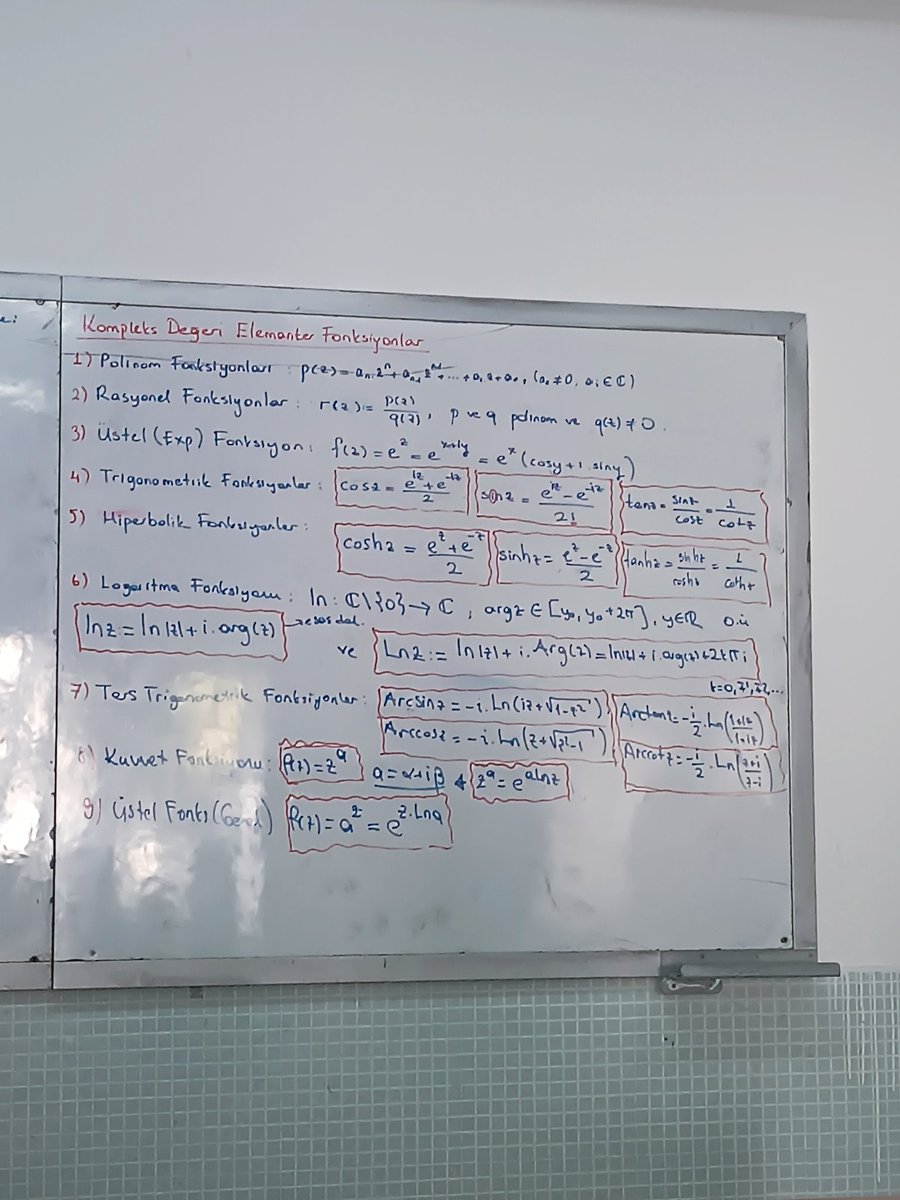 e:
Kompleks Degeri Elemanter Fonksiyonlar
1) Polinom Fonksiyonları : p(z) = aₙ.zⁿ + aₙ₋₁ zⁿ⁻¹ + ... + a₁ z + a₀ , (aₙ ≠ 0, aᵢ ∈ ℂ)
2) Rasyonel Fonksiyonlar : r(z) = p(z)/q(z) , p ve q polinom ve q(z) ≠ 0.
3) Üstel (Exp) Fonksiyon : f(z) = e^z = e^(x+iy) = e^x (cosy + i.siny)
4) Trigonometrik Fonksiyonlar : cosz = (e^(iz) + e^(-iz))/2 sinz = (e^(iz) - e^(-iz))/2i tanz = sinz/cosz = 1/cotz
5) Hiperbolik Fonksiyonlar : coshz = (e^z + e^(-z))/2 sinhz = (e^z - e^(-z))/2 tanhz = sinhz/coshz = 1/cothz
6) Logaritma Fonksiyonu : ln : ℂ\{0} → ℂ , argz ∈ [y₀, y₀+2π], y∈ℝ o.ü
lnz = ln|z| + i.arg(z) → esas dal.
ve Lnz := ln|z| + i.Arg(z) = ln|z| + i.arg(z) + 2kπi
7) Ters Trigonometrik Fonksiyonlar : Arcsinz = -i.Ln(iz + √(1-z²))
Arccosz = -i.Ln(z + √(z²-1))
Arccotz = -i/2 .Ln((z+i)/(z-i))
8) Kuvvet Fonksiyonu : f(z) = z^a a = α+iβ z^a = e^(alnz)
9) Üstel Fonks (Genel) f(z) = a^z = e^(z.Lna)